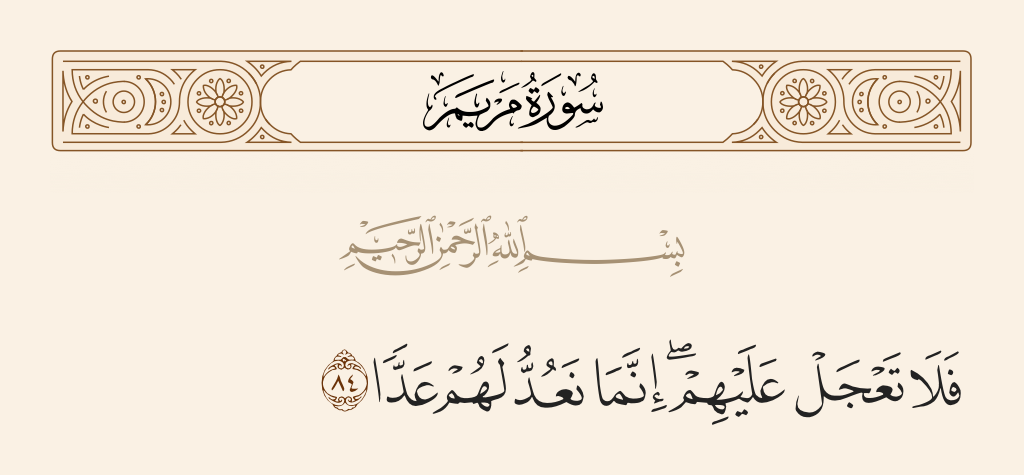 سُورَةُ مَرْيَمَ
بِسْمِ ٱللَّهِ ٱلرَّحْمَٰنِ ٱلرَّحِيمِ
فَلَا تَعْجَلْ عَلَيْهِمْ ۖ إِنَّمَا نَعُدُّ لَهُمْ عَدًّا ٨٤